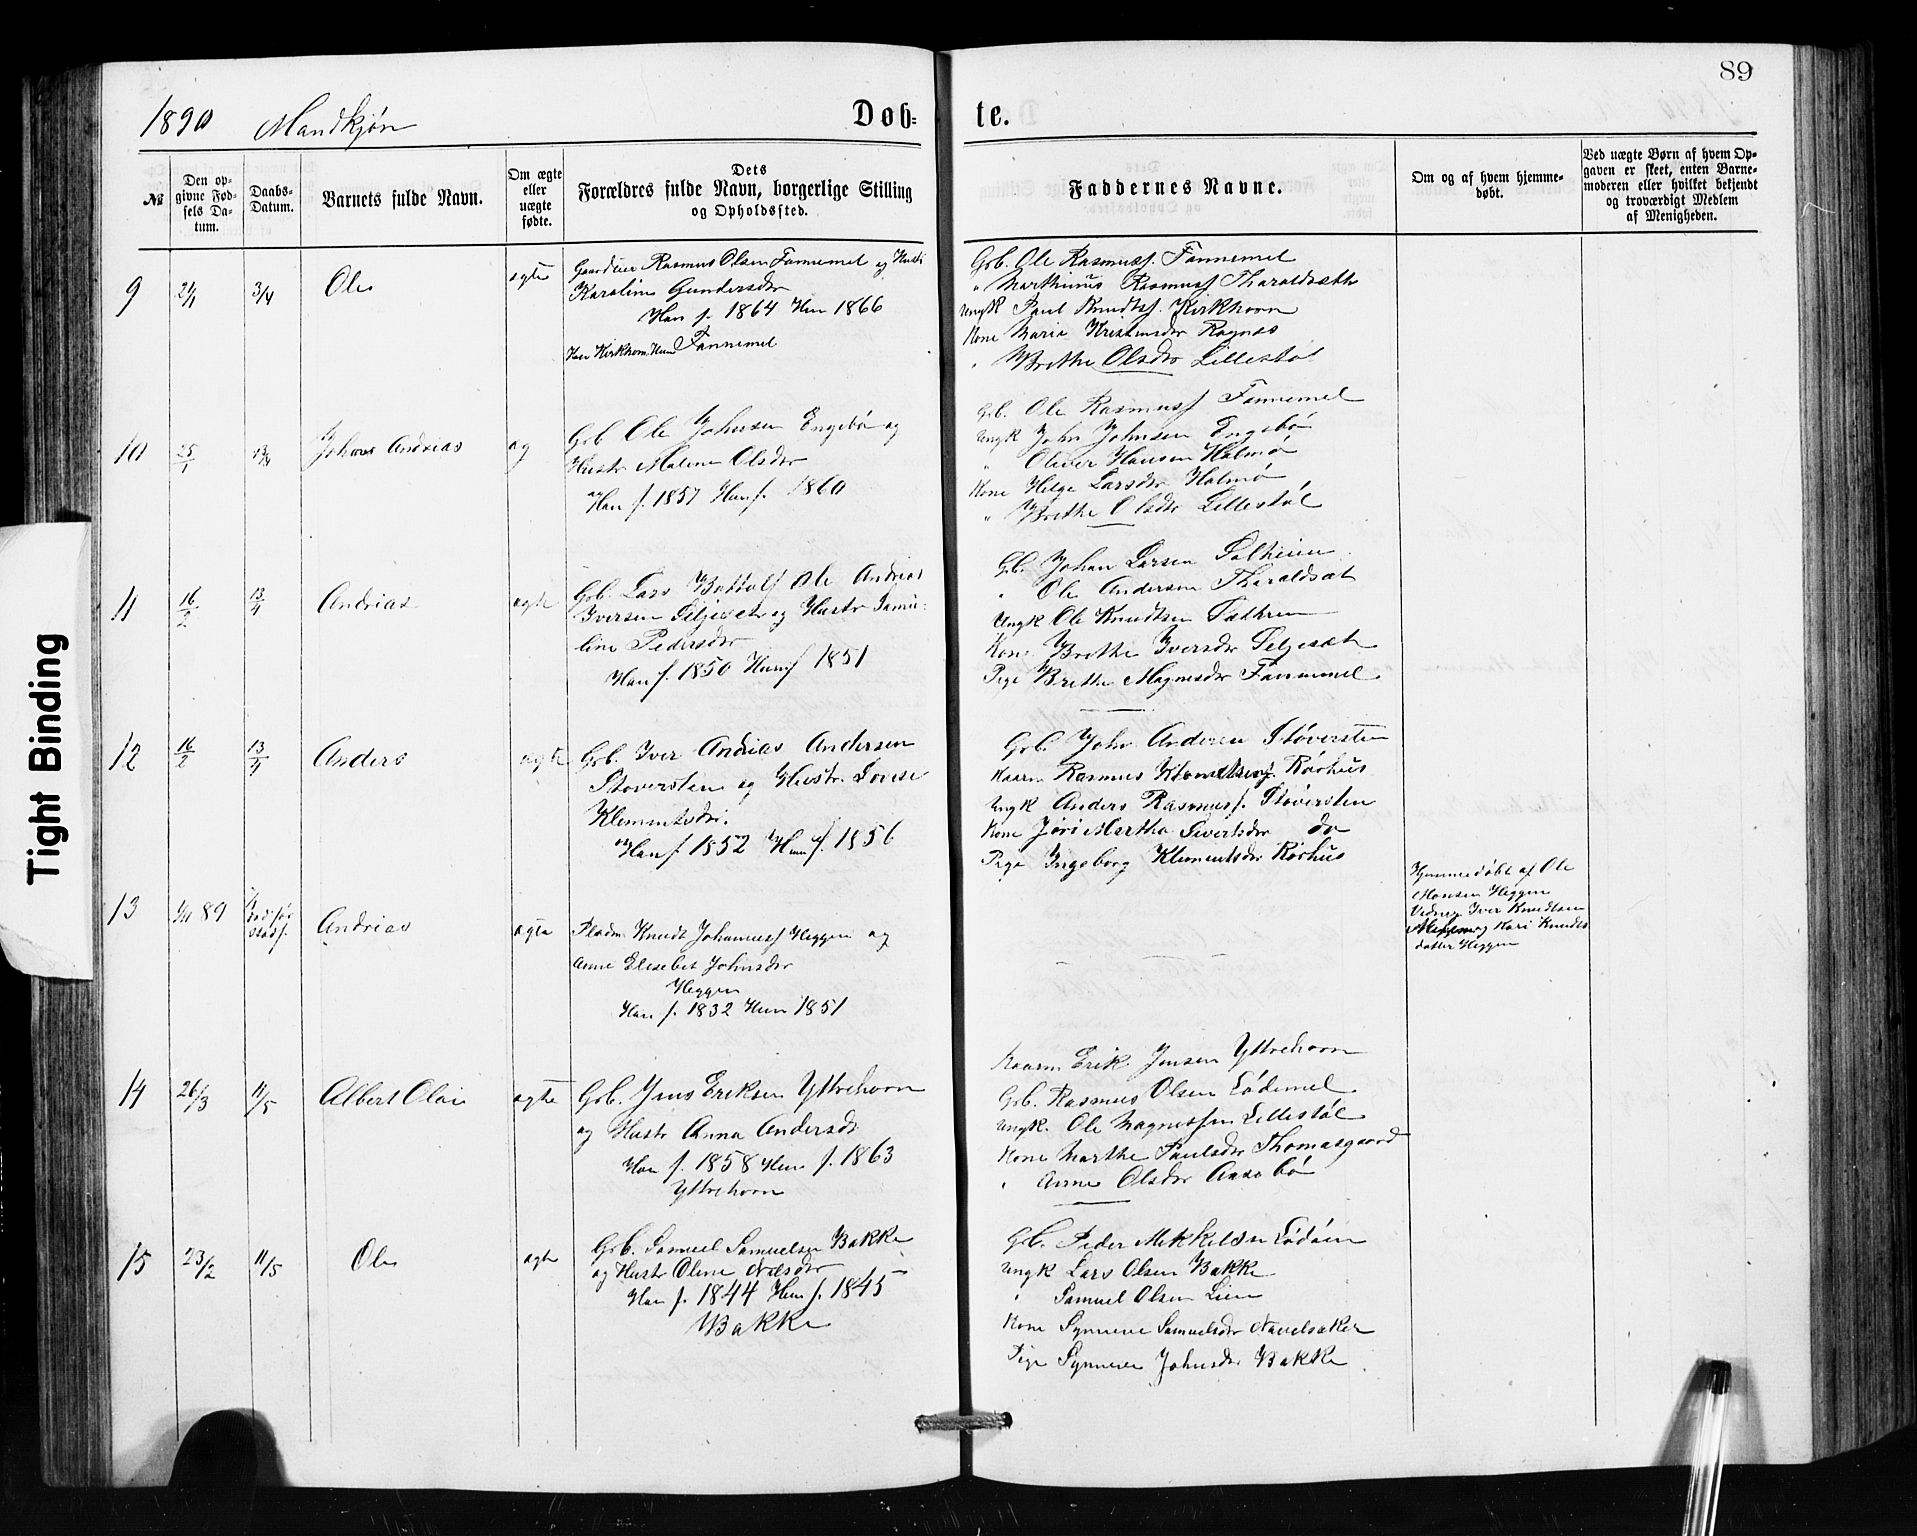 89
1890 Mandkjøn
Døb- te.
№
Den op-
givne Fød-
sels Da-
tum.
Daabs-
Datum.
Barnets fulde Navn.
Om ægte
eller
uægte
fødte.
Dets
Forældres fulde Navn, borgerlige Stilling
og Opholdssted.
Faddernes Navne.
Om og af hvem hjemme-
døbt.
Ved uægte Børn af hvem Op-
gaven er skeet, enten Barne-
moderen eller hvilket bekjendt
og troværdigt Medlem
af Menigheden.
9
3/4
Ole
ægte
Gaardeier Rasmus Olsen Fannemel og Hust
Karoline Gundersdr
Han f. 1864 Hun 1866
Han Kirkhorn Hun Fannemel
Grb. Ole Rasmuss. Fannemel
" Marthinus Rasmuss Tharaldsæth
Ungk Paul Knudts. Kirkhorn
Kone Maria Kristensdr Ragnes
" Brithe Olsdr Lillestøl
10
25/1
13/4
Johan Andrias
æg
Grb Ole Johnsen Engebø og
Hustr Malene Olsdr
Han f. 1857 Hun f. 1860
Grb. Ole Rasmuss Fannemel
Ungk John Johnsen Engebø
" Oliver Hansen Halmø
Kone Helge Larsdr Halmø
" Brithe Olsdr Lillestøl
11
16/2
13/4
Andrias
ægte
Grb. Lars Bottolf Ole Andrias
Iversen Seljesæt og Hustr Samu-
line Pedersdr
Han f. 1850 Hun f 1851
Gb. Johan Larsen Solheim
" Ole Andersen Tharaldsæt
Ungk Ole Knudtsen
Kone Brithe Iversdr Seljesæt
Pige Brithe Magnesdr Fannemel
12
16/2
13/4
Anders
ægte
Grb. Iver Andrias Andersen
Støversten og Hustr. Lovise
Klementsdr.
Han f 1852 Hun f. 1856
Grb. John Andersen Støversten
Kaarm Rasmus Rørhus
Ungk Anders Rasmuss. Støversten
Kone Jøri Martha Sivertsdr do
Pige Ingeborg Klementsdr Rørhus
13
89
Andrias
ægte
Pladm Knudt Johanness Heggen og
Anne Elisebet Johnsdr
Heggen
Han f. 1832 Hun 1851
Hjemmedøbt af Ole
Monsen Heggen
Vidner Iver Knudtsen
og Kari Knuds
datter Heggen
14
26/3
11/5
Albert Olai
ægte
Grb. Jens Eriksen Yttrehorn
og Hustr Anna Andersdr
Han f. 1858 Hun f. 1863
Yttrehorn
Kaarm Erik Jensen Yttrehorn
Grb. Rasmus Olsen Lødemel
Ungk. Ole Magnussen Lillestøl
Kone Marthe Paulsdr Thomasgaard
" Anne Olsdr Aasebø
15
23/2
11/5
Ole
ægte
Grb. Samuel Samuelsen Bakke
og Hustr Oline Nilsdr
Han f. 1844 Hun f. 1845
Bakke
Grb. Peder Mikkelsen Lødøen
Ungk Lars Olsen Bakke
" Samuel Olsen Lien
Kone Synneve Samuelsdr Navelsaker
Pige Synneve Johnsdr Bakke
Tight Binding